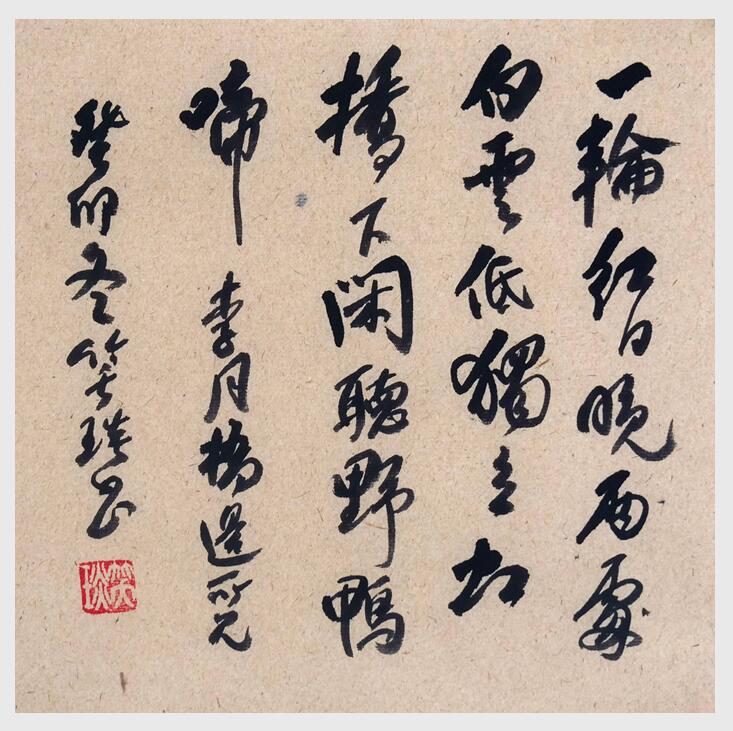 一輪紅日晚雨霽
白雲低獨立村
橋下閑聽野鴨
啼 李月橋邊所見
癸卯冬笑書